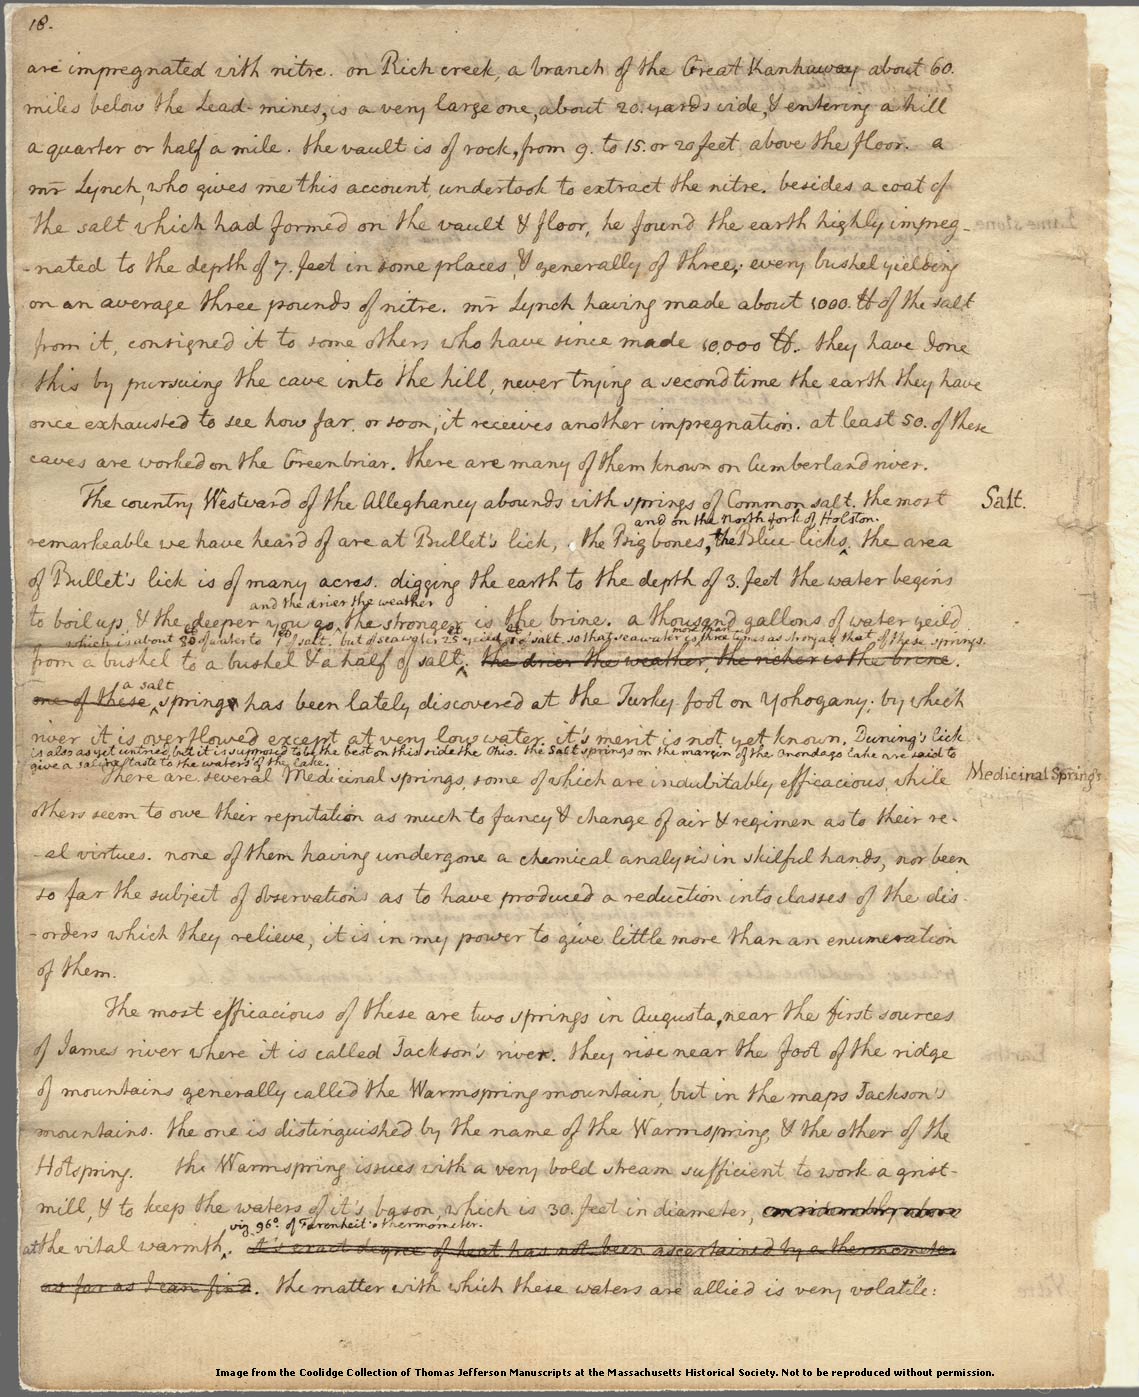 18.
are impregnated with nitre. on Rich creek, a branch of the Great Kanhaway about 60.
miles below the Lead-mines, is a very large one, about 20. yards wide, & entering a hill
a quarter or half a mile. the vault is of rock, from 9. to 15. or 20 feet above the floor. a
mr Lynch, who gives me this account, undertook to extract the nitre. besides a coat of
the salt which had formed on the vault & floor, he found the earth highly impreg-
-nated to the depth of 7. feet in some places, & generally of three, every bushel yielding
on an average three pounds of nitre. mr Lynch having made about 1000. ℔ of the salt
from it, consigned it to some others who have since made 10,000 ℔. they have done
this by pursuing the cave into the hill, never trying a second time the earth they have
once exhausted to see how far or soon, it receives another impregnation. at least 50. of these
caves are worked on the Greenbriar. there are many of them known on Cumberland river.
The country Westward of the Alleghaney abounds with springs of Common salt. the most
Salt.
and on the North fork of Holston.
remarkeable we have heard of are at Bullet's lick, the Big bones, the Blue licks, the area
of Bullet's lick is of many acres. digging the earth to the depth of 3. feet the water begins
and the drier the weather
to boil up, & the deeper you go, the stronger is the brine. a thousand gallons of water yeild
which is about 80 ℔ of water to 1 ℔ of salt. but of sea water 25 ℔ yeild 1 ℔ of salt. so that sea water is more than three times as strong as that of these springs.
from a bushel to a bushel & a half of salt, the drier the weather, the richer is the brine.
a salt
one of these springs has been lately discovered at the Turkey foot on Yohogany; by which
river it is overflowed except at very low water. it's merit is not yet known. Duning's lick
is also as yet untried, but it is supposed to be the best on this side the Ohio. the Salt springs on the margin of the Onondago lake are said to
give a saline taste to the waters of the lake.
There are several Medicinal springs, some of which are indubitably efficacious, while
Medicinal Springs
others seem to owe their reputation as much to fancy & change of air & regimen as to their re-
-al virtues. none of them having undergone a chemical analysis in skilful hands, nor been
so far the subject of observations as to have produced a reduction into classes of the dis-
-orders which they relieve, it is in my power to give little more than an enumeration
of them.
The most efficacious of these are two springs in Augusta, near the first sources
of James river where it is called Jackson's river. they rise near the foot of the ridge
of mountains generally called the Warmspring mountain, but in the maps Jackson's
mountains. the one is distinguished by the name of the Warmspring, & the other of the
Hotspring. the Warmspring issues with a very bold stream sufficient to work a grist-
mill, & to keep the waters of it's bason, which is 30. feet in diameter, considerably above
viz 96°. of Farenheit's thermometer.
at the vital warmth, it's exact degree of heat has not been ascertained by a thermometer
as far as I can find. the matter with which these waters are allied is very volatile:
Image from the Coolidge Collection of Thomas Jefferson Manuscripts at the Massachusetts Historical Society. Not to be reproduced without permission.